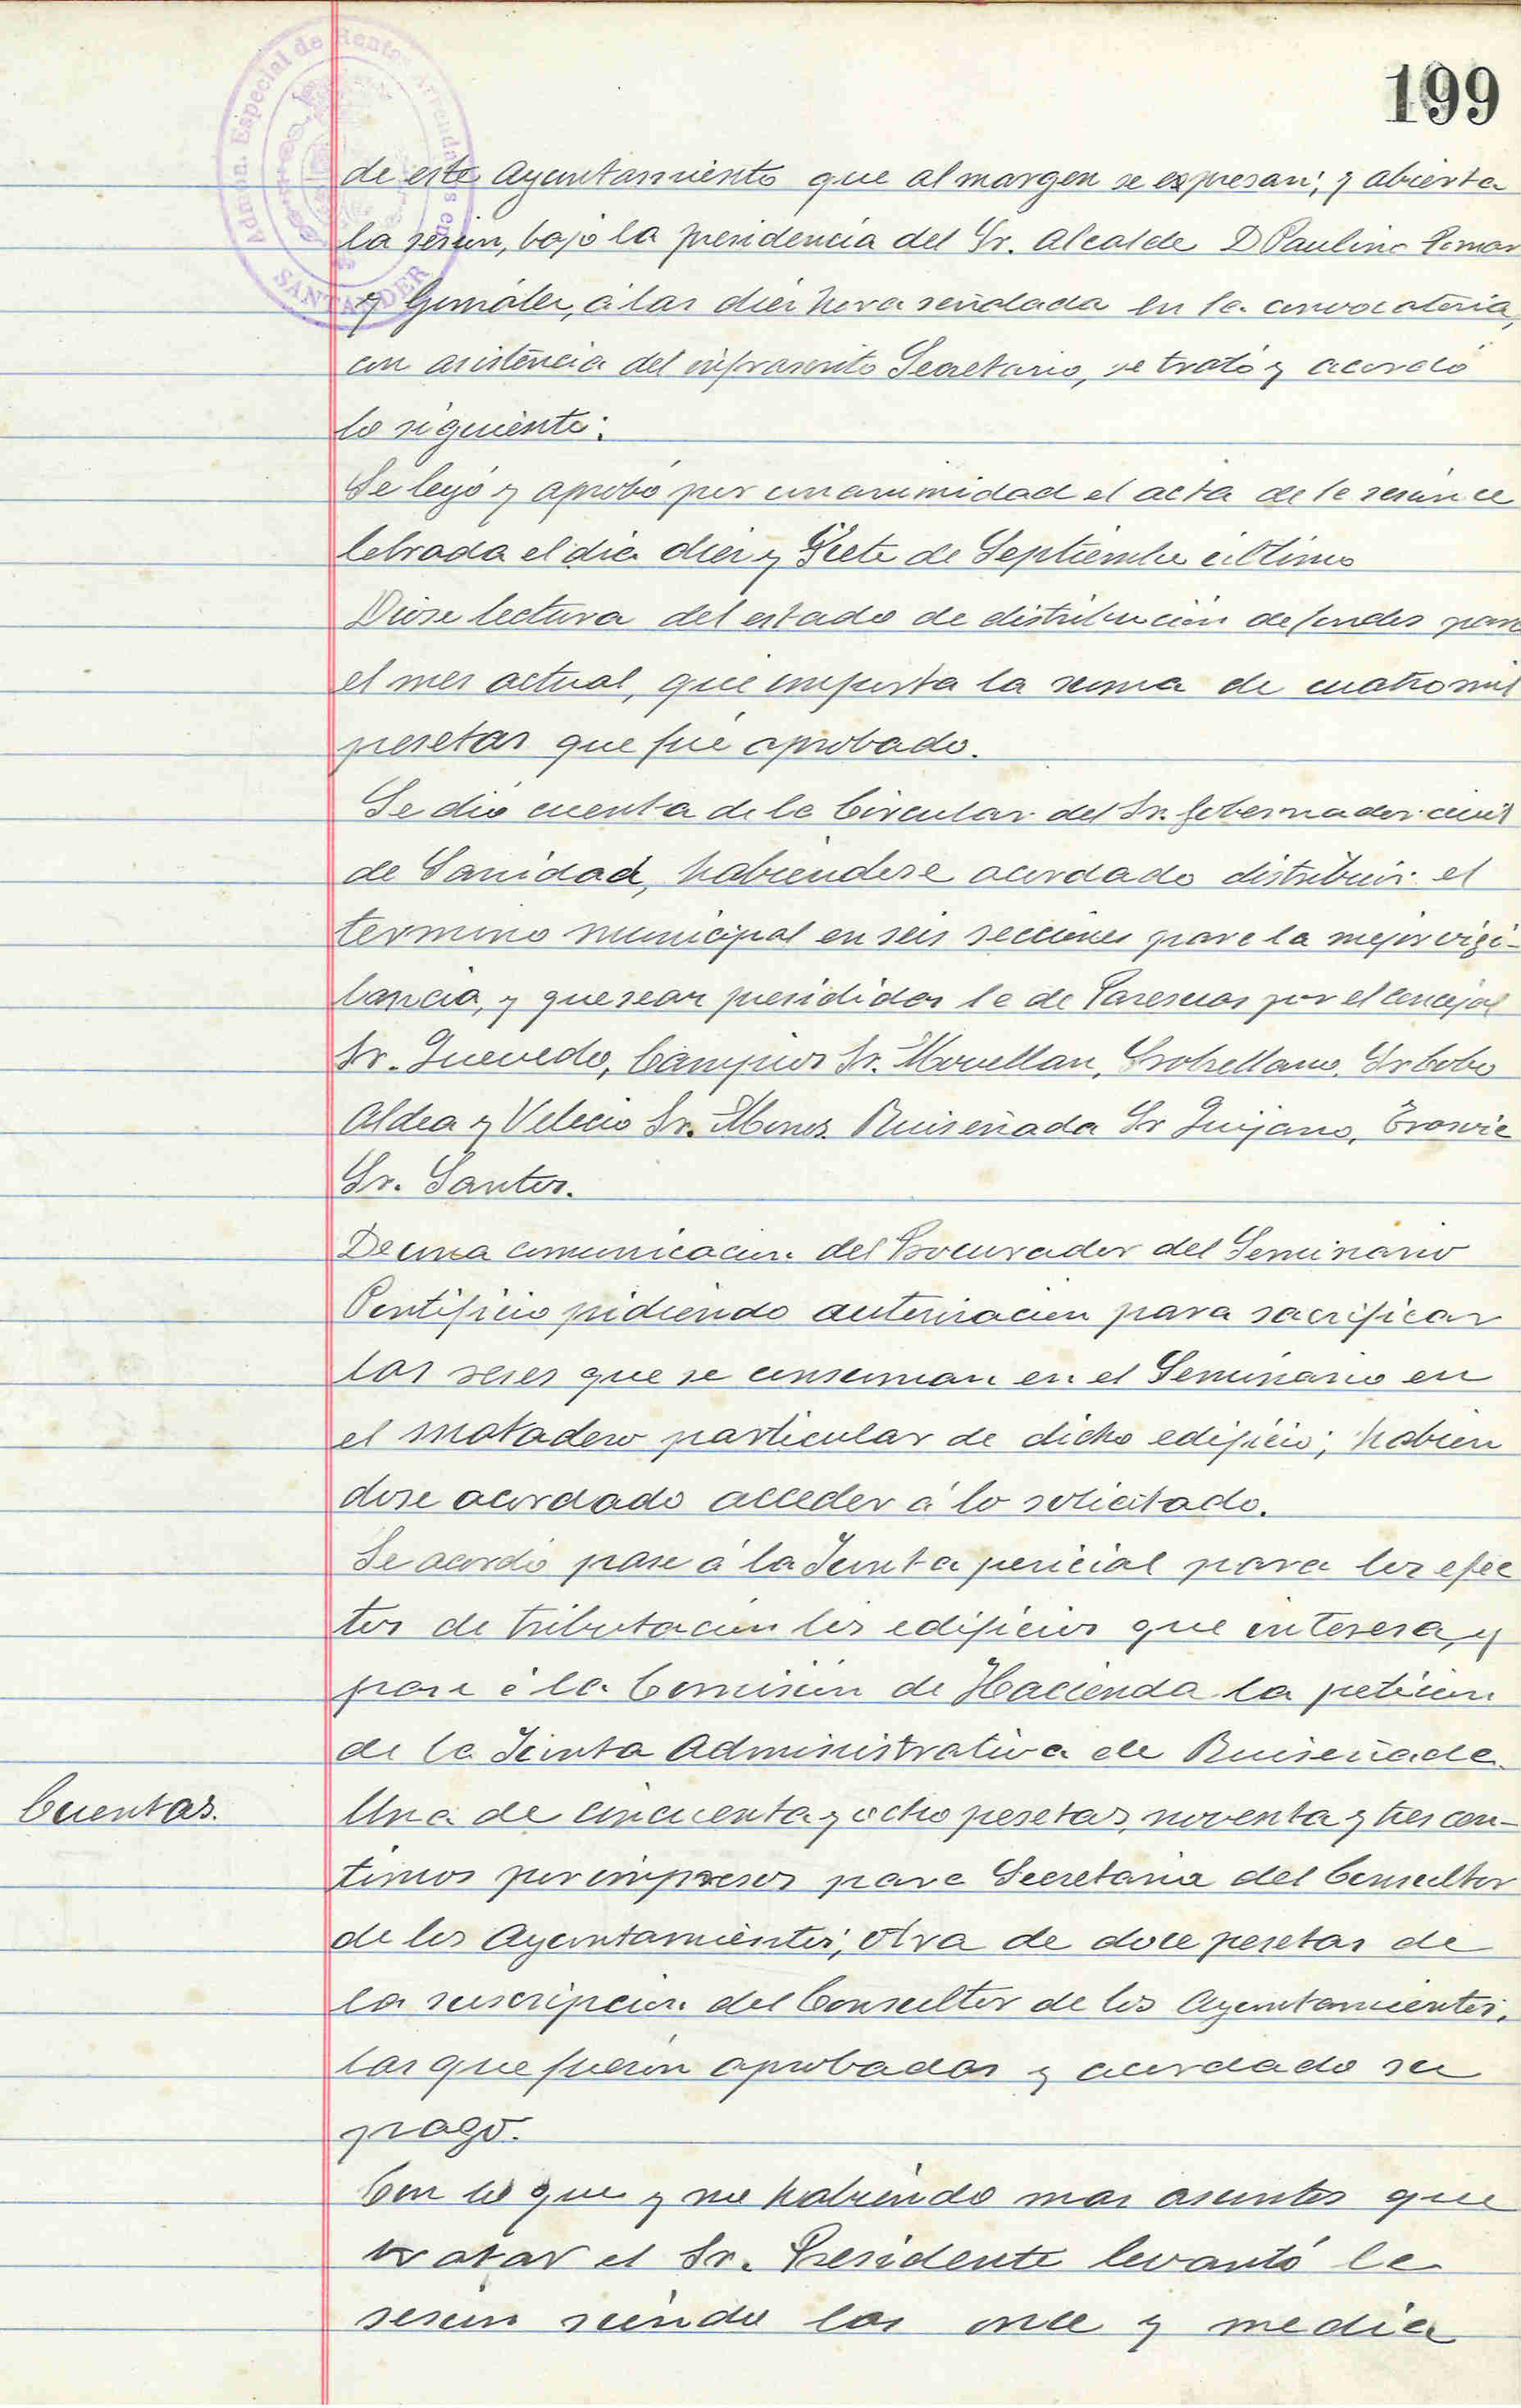 199
Admón. Especial de Rentas Arrendadas en
SANTANDER
de este Ayuntamiento que al margen se expresan; y abierta
la sesión, bajo la presidencia del Sr. Alcalde D Paulino
y González, á las diez hora señalada en la convocatoria,
con asistencia del infrascrito Secretario, se trató y acordó
lo siguiente:
Se leyó y aprobó por unanimidad el acta de la sesión ce
lebrada el dia diez y Siete de Septiembre último
Diose lectura del estado de distribución de fondos para
el mes actual, que importa la suma de cuatro mil
pesetas que fué aprobado.
Se dió cuenta de la Circular del Sr. Gobernador civil
de Sanidad, habiendose acordado distribuir el
termino municipal en seis secciones para la mejor vigi-
lancia, y que sean presididas la de Pareseas por el concejal
Sr. Quevedo, Campios Sr. Movellan, Sobrellano. Sr Cobo
Aldea y Velecio Sr. Mones Ruiseñada Sr Quijano, Trasvia
Sr. Santos.
De una comunicacion del Procurador del Seminario
Pontificio pidiendo autorizacion para sacrificar
las reses que se consuman en el Seminario en
el matadero particular de dicho edificio; habien
dose acordado acceder á lo solicitado.
Se acordó pase á la Junta pericial para los efec
tos de tributacion los edificios que interesa, y
pase á la Comisión de Hacienda la petición
de la Junta Administrativa de Ruiseñada.
Cuentas. Una de cincuenta y ocho pesetas, noventa y tres cen-
timos por impresos para Secretaria del Consultor
de los Ayuntamientos; otra de doce pesetas de
la suscripcion del Consultor de los Ayuntamientos,
las que fueron aprobadas y acordado su
pago.
Con lo que y no habiendo mas asuntos que
tratar el Sr. Presidente levantó la
sesión siendo las once y media